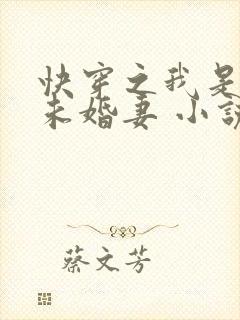 快穿之我是
未婚妻 小説
蔡文芳